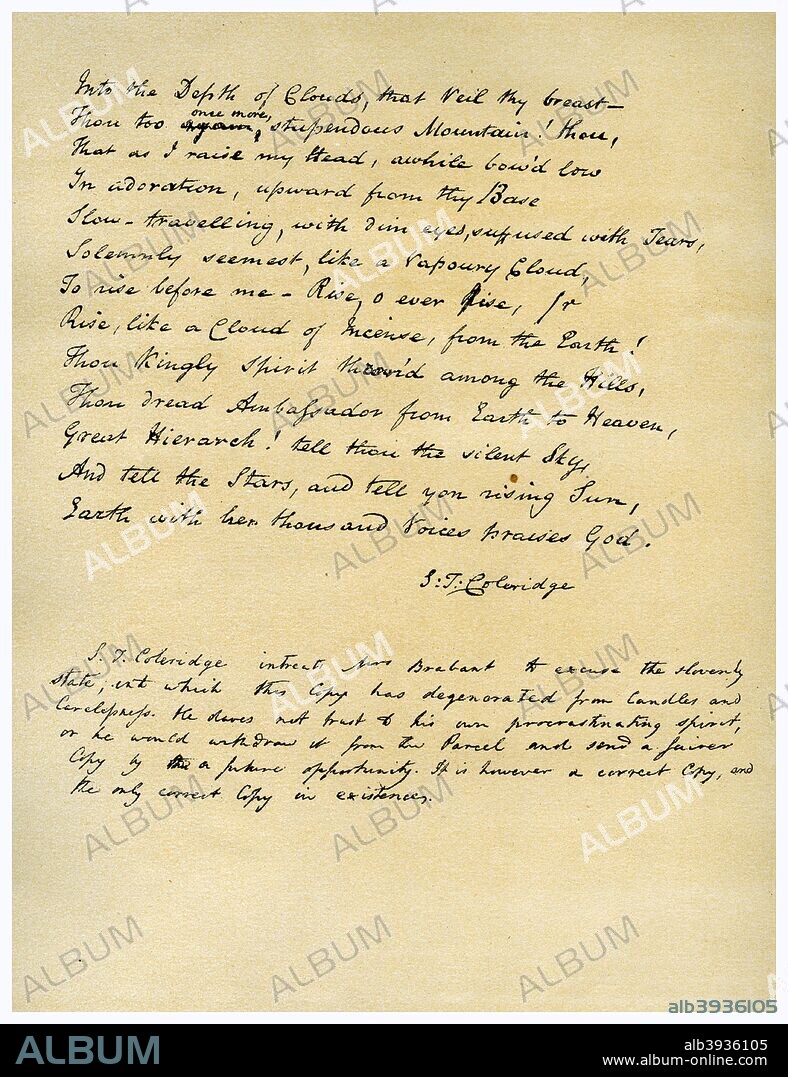 Into the Depth of Clouds, that Veil thy breast—
Thou too again, once more, stupendous Mountain! thou,
That as I raise my Head, awhile bow'd low
In adoration, upward from thy Base
Slow-travelling, with dim eyes, suffused with Tears,
Solemnly seemest, like a Vapoury Cloud,
To rise before me – Rise, o ever Rise,
Rise, like a Cloud of Incense, from the Earth!
Thou Kingly Spirit thron'd among the Hills,
Thou dread Ambassador from Earth to Heaven,
Great Hierarch! tell thou the silent Sky,
And tell the Stars, and tell yon rising Sun,
Earth with her thousand Voices praises God.
S: T: Coleridge
S. T. Coleridge intreats Mrs Brabant to excuse the slovenly
state, into which this Copy has degenerated from Candles and
Carelessness. He dares not trust to his own procrastinating spirit,
or he would withdraw it from the Parcel and send a fairer
Copy by the a future opportunity. It is however a correct Copy, and
the only correct Copy in existence.
ALBUM
alb3936105
ALBUM
alb3936105
www.album-online.com